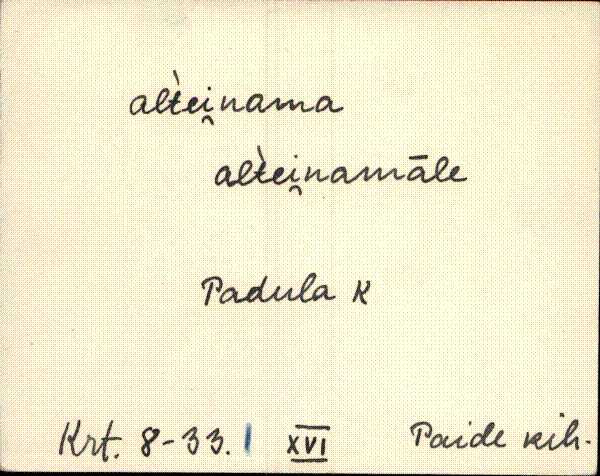 al̀tei̯nama
al̀tei̯namāle
Padula K
Krt. 8-33. | XVI Paide kih.